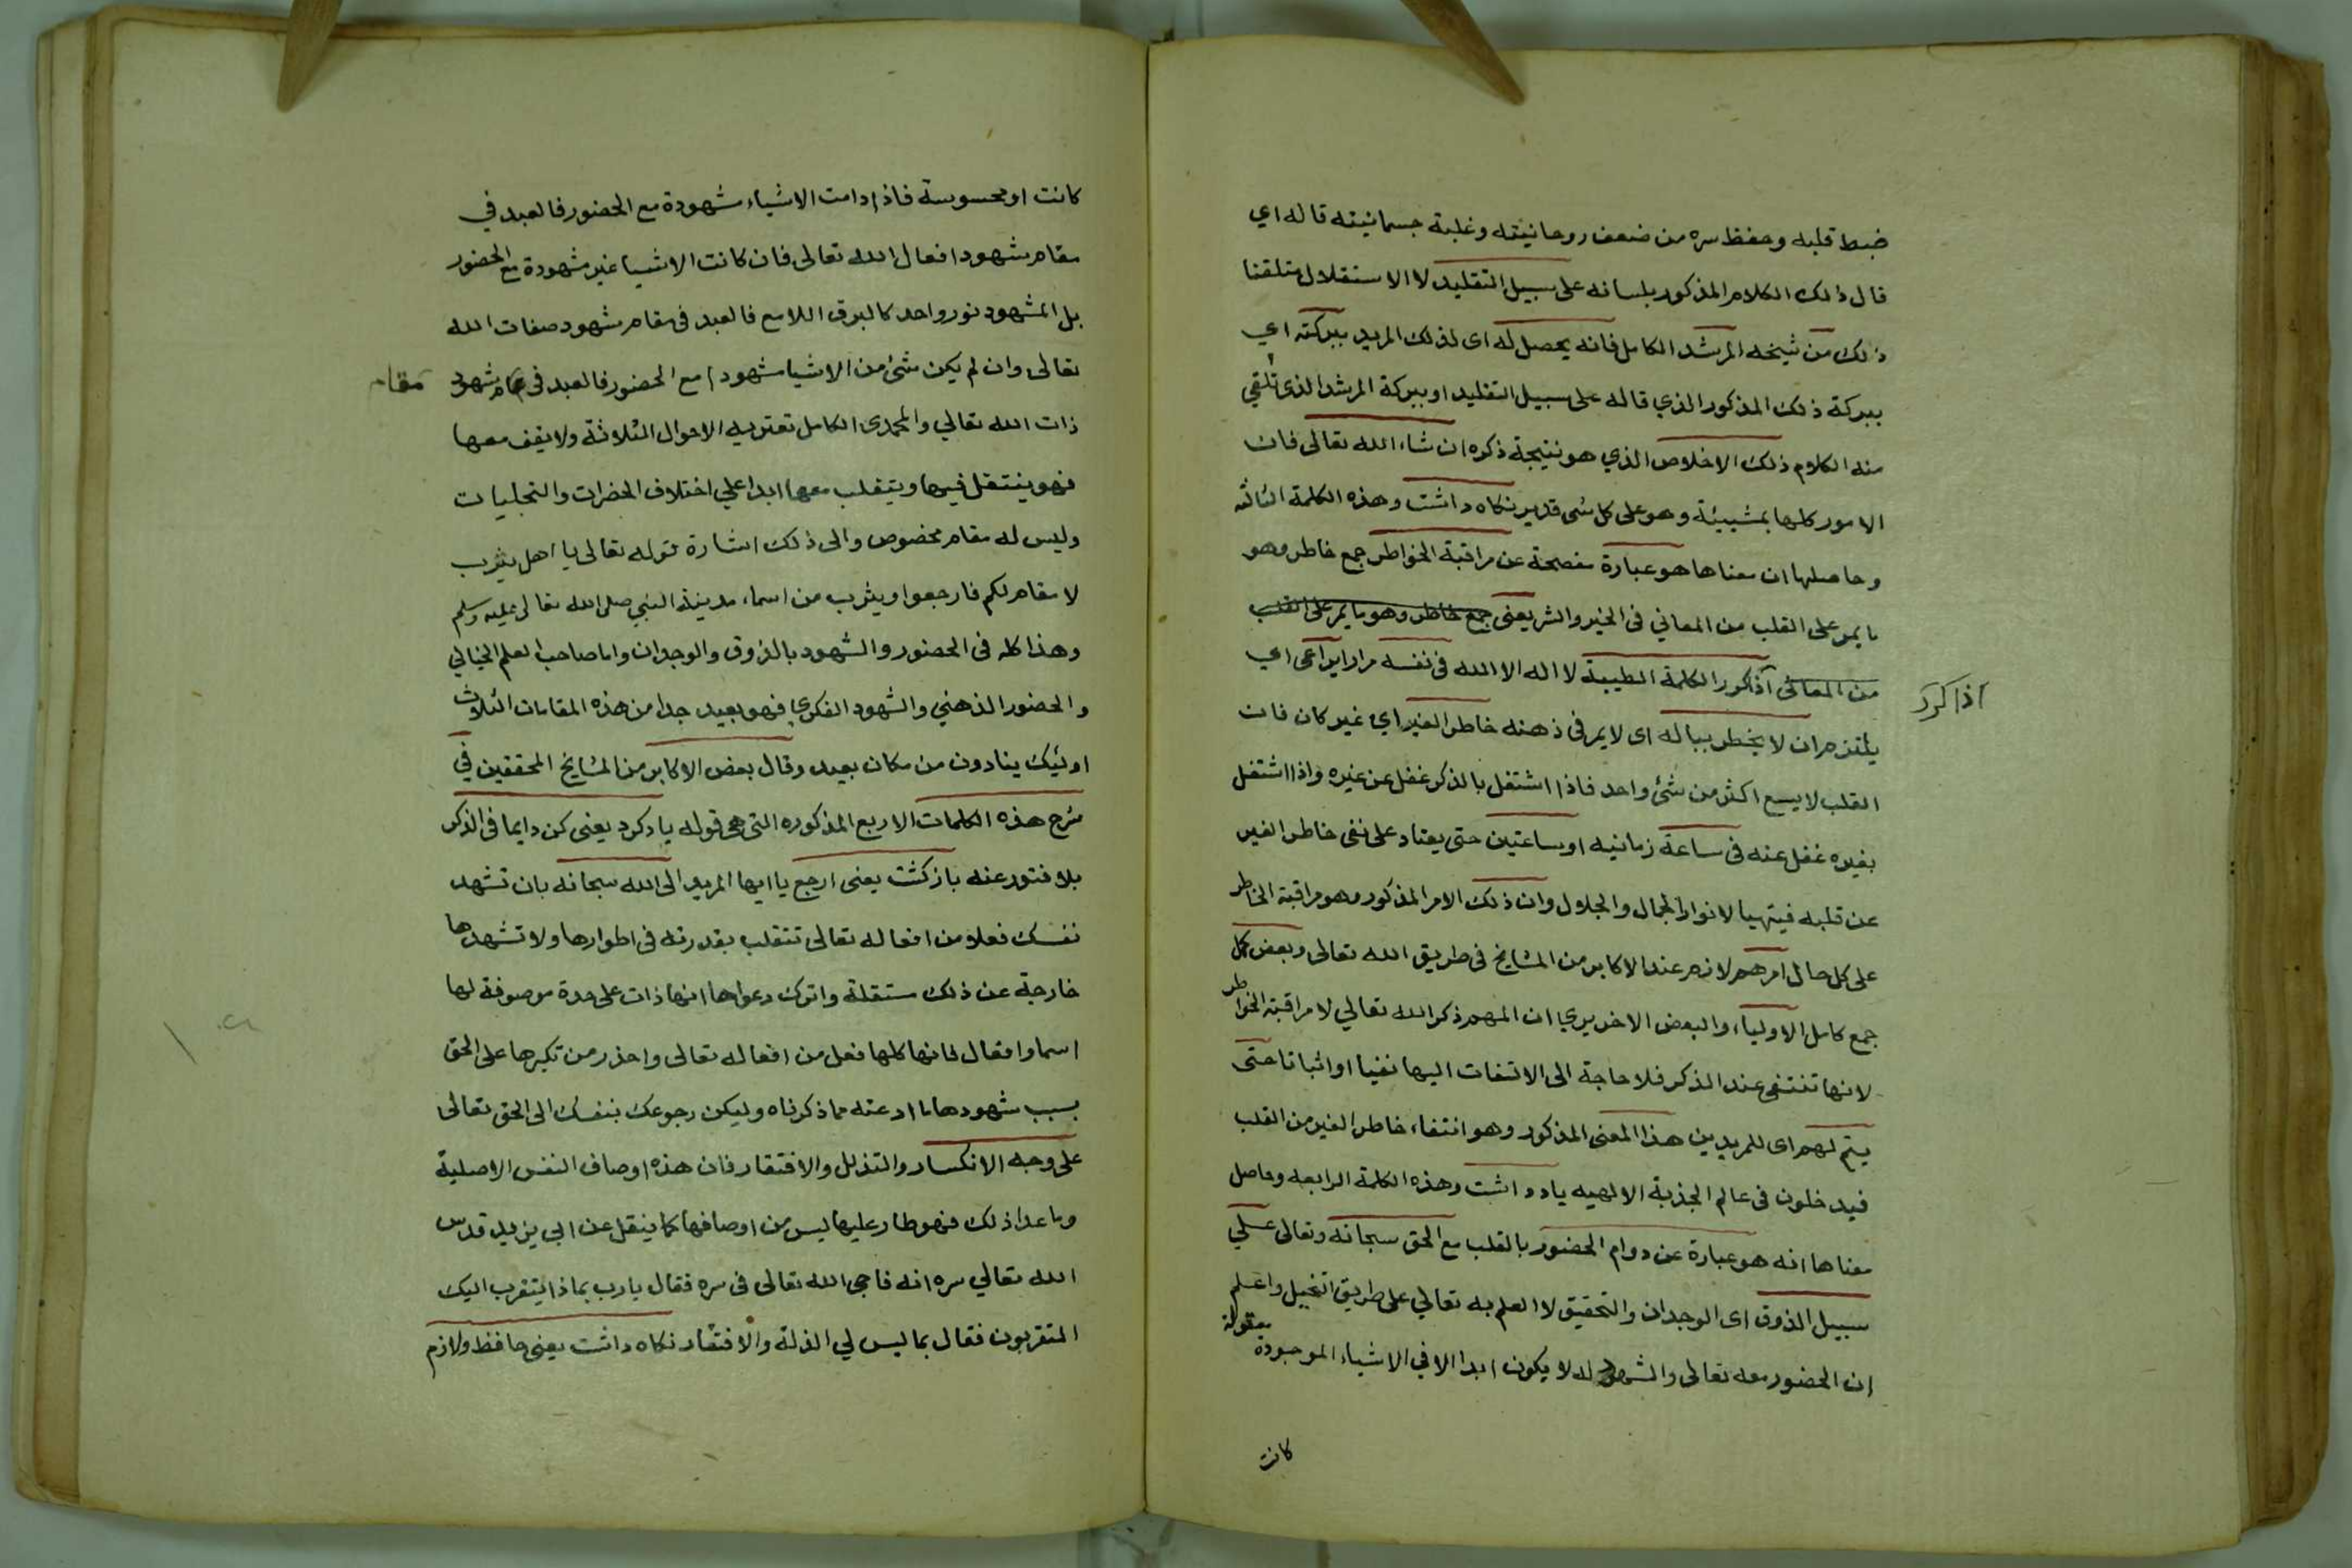 ضبط قلبه وحفظ سره من ضعف روحانيته وغلبة جسمانيته قاله اي
قال ذلك الكلام المذكور بلسانه على سبيل التقليد لا الاستقلال متلقنا
ذلك من شيخه المرشد الكامل فانه يحصل له اى لذلك المريد ببركته اي
ببركة ذلك المذكور الذي قاله على سبيل التقليد او ببركة المرشد الذى تلقي
منه الكلام ذلك الاخلاص الذي هو نتيجة ذكره ان شاء الله تعالى فان
الامور كلها بمشيئة وهو على كل شى قدير نكاه داشت وهذه الكلمة الثالثه
وحاصلها ان معناها هو عبارة مفصحة عن مراقبة الخواطر جمع خاطر وهو
ما يمر على القلب من المعاني فى الخير والشر يعنى جمع خاطر وهو ما يمر على القلب
من المعانى آذاكور الكلمة الطيبة لا اله الا الله فى نفسه مرارا يراعى اي
اذا كرد
يلتزم ان لا يخطر بباله اى لا يمر فى ذهنه خاطر الغير اي غير كان فان
القلب لا يسع اكثر من شئ واحد فاذا اشتغل بالذكر غفل عن غيره واذا اشتغل
بغيره غفل عنه فى ساعة زمانيه او ساعتين حتى يعتاد على نفى خاطر الغير
عن قلبه فيتهيا لانوار الجمال والجلال وان ذلك الامر المذكور وهو مراقبة الخاطر
على كل حال امر هم لازم عند الاكابر من المشايخ فى طريق الله تعالى وبعض كمل
جمع كامل الاولياء والبعض الاخر يري ان المهم ذكر الله تعالي لا مراقبة الخواطر
لانها تنتفى عند الذكر فلا حاجة الى الالتفات اليها نفيا او اثباتا حتى
يتم لهم اى للمريدين هذا المعنى المذكور وهو انتفاء خاطر الغير من القلب
فيدخلون فى عالم الجذبة الالهيه ياد داشت وهذه الكلمة الرابعه وحاصل
معناها انه هو عبارة عن دوام الحضور بالقلب مع الحق سبحانه وتعالى على
سبيل الذوق اى الوجدان والتحقيق لا العلم به تعالي على طريق التخييل واعلم
ان الحضور معه تعالى والشهود له لا يكون ابدا الا في الاشياء الموجودة معقولة
كانت
كانت او محسوسة فاذا دامت الاشياء مشهودة مع الحضور فالعبد في
مقام شهود افعال الله تعالى فان كانت الاشيا غير مشهودة مع الحضور
بل المشهود نور واحد كالبرق اللامع فالعبد فى مقام شهود صفات الله
تعالى وان لم يكن شئ من الاشيا مشهودا مع الحضور فالعبد فى مقام شهود
مقام
ذات الله تعالي والمحمدى الكامل تعتريه الاحوال الثلاثة ولا يقف معها
فهو ينتقل فيها ويتقلب معها ابدا علي اختلاف الحضرات والتجليات
وليس له مقام مخصوص والى ذلك اشارة قوله تعالى يا اهل يثرب
لا مقام لكم فارجعوا ويثرب من اسماء مدينة النبي صلى الله تعالى عليه وسلم
وهذا كله فى الحضور والشهود بالذوق والوجدان واما صاحب العلم الخيالي
والحضور الذهني والشهود الفكري فهو بعيد جدا من هذه المقامات الثلاث
اولئيك ينادون من مكان بعيد وقال بعض الاكابر من المشايخ المحققين في
شرح هذه الكلمات الاربع المذكوره التى هى قوله ياد كرد يعنى كن دايما فى الذكر
بلا فتور عنه باز كشت يعنى ارجع يا ايها المريد الى الله سبحانه بان تشهد
نفسك فعلا من افعاله تعالى تتقلب بقدرته فى اطوارها ولا تشهدها
خارجة عن ذلك مستقلة واترك دعواها انها ذات على حدة موصوفة لها
اسما وافعال لانها كلها فعل من افعاله تعالى واحذر من تكبرها على الحق
بسبب شهودها ما ادعته مما ذكرناه وليكن رجوعك بنفسك الى الحق تعالى
على وجه الانكسار والتذلل والافتقار فان هذه اوصاف النفس الاصلية
وما عدا ذلك فهو طار عليها ليس من اوصافها كما ينقل عن ابي يزيد قدس
الله تعالي سره انه ناجى الله تعالى فى سره فقال يا رب بماذا يتقرب اليك
المتقربون فقال بما ليس لي الذلة والافتقار نكاه داشت يعنى حافظ ولازم